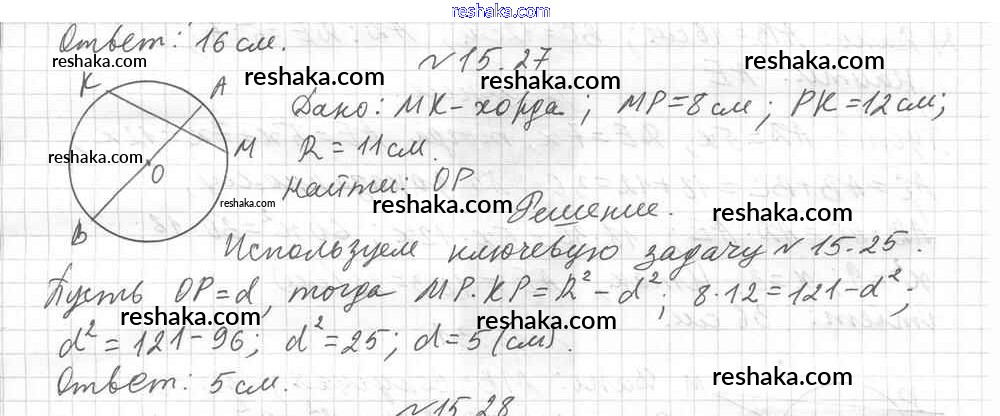 reshaka.com
Ответ: 16 см.
reshaka.com
№ 15.27
reshaka.com
reshaka.com
K A
Дано: МК - хорда; МР = 8 см; РК = 12 см;
reshaka.com
M R = 11 см.
reshaka.com
O
Найти: ОР
reshaka.com
reshaka.com
reshaka.com
Решение.
B
Используем ключевую задачу № 15.25.
Пусть ОР = d, тогда МР · КР = R² – d²; 8 · 12 = 121 – d²;
reshaka.com
reshaka.com
d² = 121 – 96; d² = 25; d = 5 (см).
Ответ: 5 см.
reshaka.com
№ 15.28